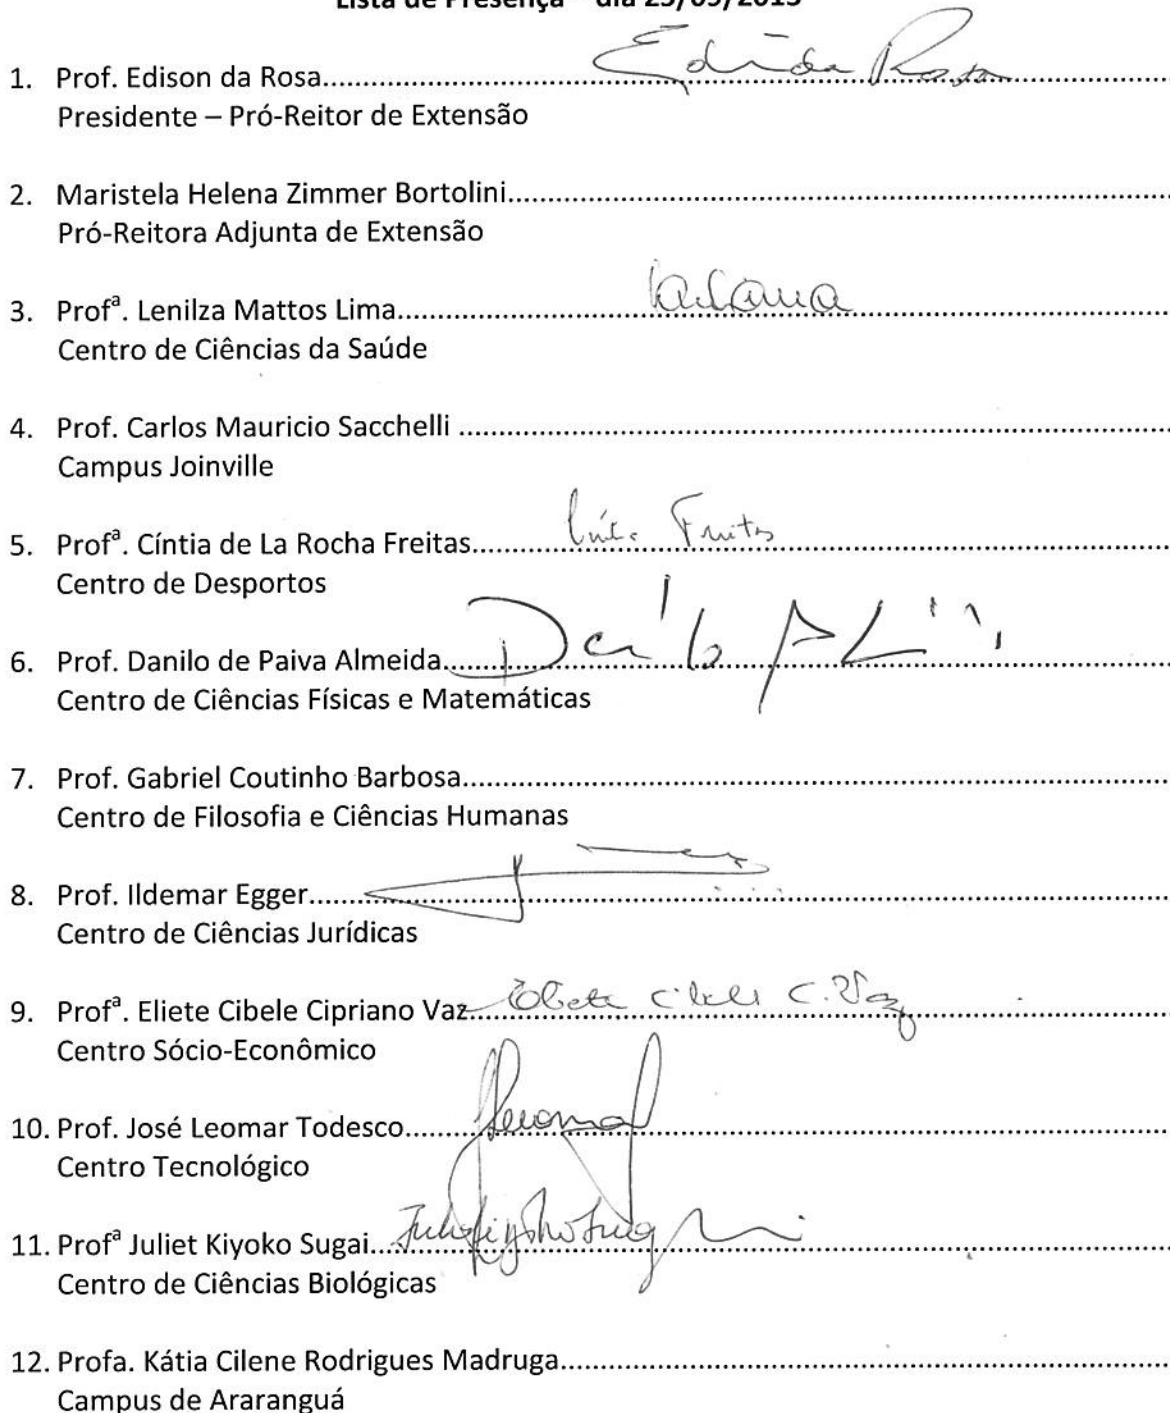 Lista de Presença – dia 25/09/2013
1. Prof. Edison da Rosa.......... Edison da Rosa
Presidente – Pró-Reitor de Extensão
2. Maristela Helena Zimmer Bortolini..........
Pró-Reitora Adjunta de Extensão
3. Profª. Lenilza Mattos Lima..........
Centro de Ciências da Saúde
4. Prof. Carlos Mauricio Sacchelli ..........
Campus Joinville
5. Profª. Cíntia de La Rocha Freitas.......... Cíntia Freitas
Centro de Desportos
6. Prof. Danilo de Paiva Almeida.......... Danilo
Centro de Ciências Físicas e Matemáticas
7. Prof. Gabriel Coutinho Barbosa..........
Centro de Filosofia e Ciências Humanas
8. Prof. Ildemar Egger..........
Centro de Ciências Jurídicas
9. Profª. Eliete Cibele Cipriano Vaz.......... Eliete Cibele C. Vaz
Centro Sócio-Econômico
10. Prof. José Leomar Todesco.......... Leomar
Centro Tecnológico
11. Profª Juliet Kiyoko Sugai.......... Juliet Kiyoko Sugai
Centro de Ciências Biológicas
12. Profa. Kátia Cilene Rodrigues Madruga..........
Campus de Araranguá